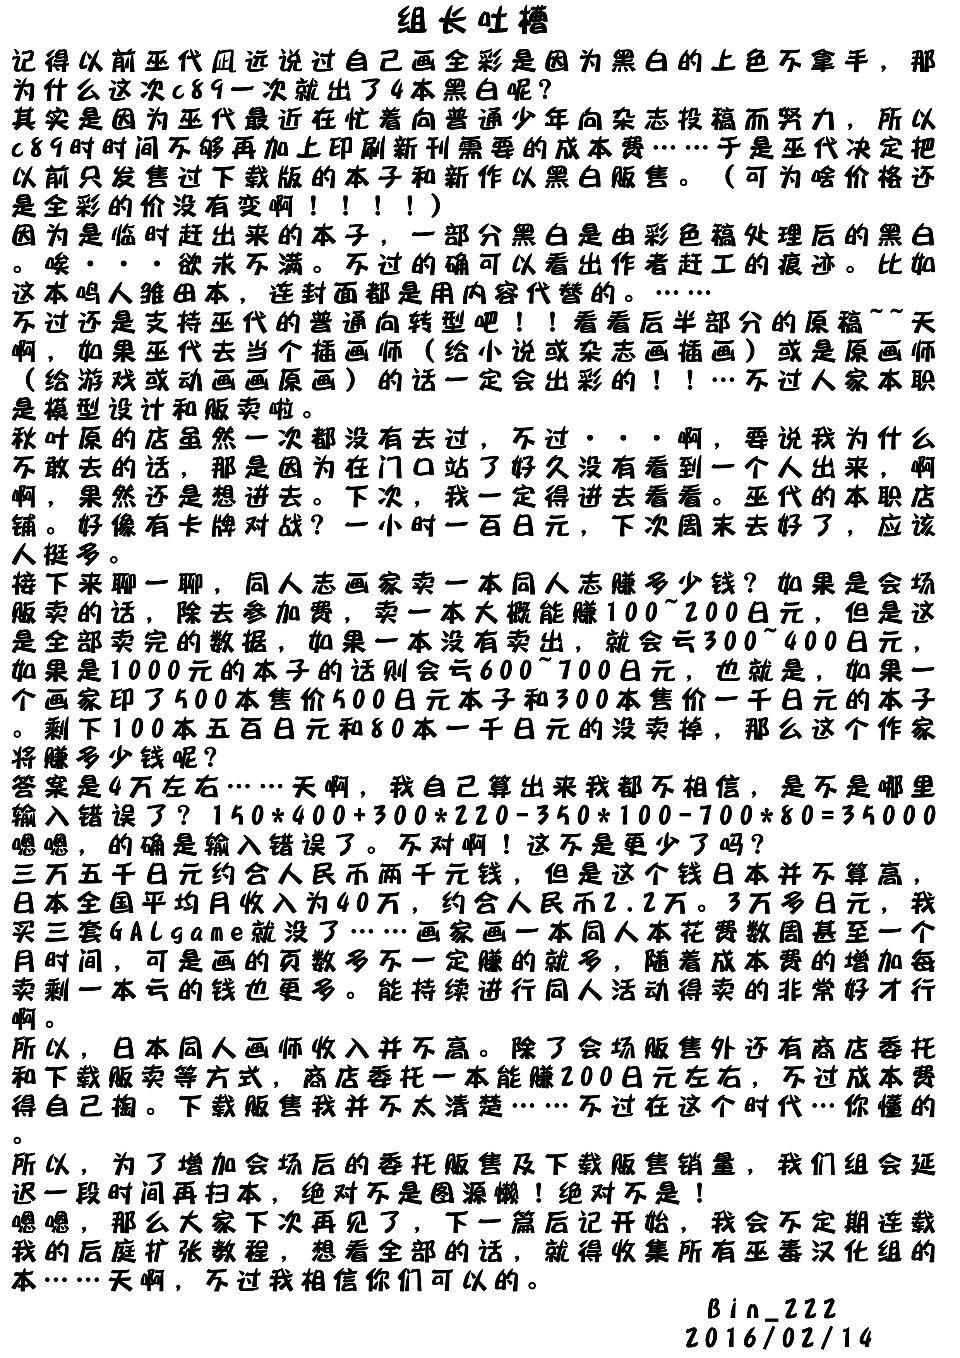 组长吐槽
记得以前巫代凪远说过自己画全彩是因为黑白的上色不拿手，那
为什么这次c89一次就出了4本黑白呢？
其实是因为巫代最近在忙着向普通少年向杂志投稿而努力，所以
c89时时间不够再加上印刷新刊需要的成本费……于是巫代决定把
以前只发售过下载版的本子和新作以黑白贩售。（可为啥价格还
是全彩的价没有变啊！！！！）
因为是临时赶出来的本子，一部分黑白是由彩色稿处理后的黑白
。唉・・・欲求不满。不过的确可以看出作者赶工的痕迹。比如
这本鸣人雏田本，连封面都是用内容代替的。……
不过还是支持巫代的普通向转型吧！！看看后半部分的原稿~~天
啊，如果巫代去当个插画师（给小说或杂志画插画）或是原画师
（给游戏或动画画原画）的话一定会出彩的！！…不过人家本职
是模型设计和贩卖啦。
秋叶原的店虽然一次都没有去过，不过・・・啊，要说我为什么
不敢去的话，那是因为在门口站了好久没有看到一个人出来，啊
啊，果然还是想进去。下次，我一定得进去看看。巫代的本职店
铺。好像有卡牌对战？一小时一百日元，下次周末去好了，应该
人挺多。
接下来聊一聊，同人志画家卖一本同人志赚多少钱？如果是会场
贩卖的话，除去参加费，卖一本大概能赚100~200日元，但是这
是全部卖完的数据，如果一本没有卖出，就会亏300~400日元，
如果是1000元的本子的话则会亏600~700日元，也就是，如果一
个画家印了500本售价500日元本子和300本售价一千日元的本子
。剩下100本五百日元和80本一千日元的没卖掉，那么这个作家
将赚多少钱呢？
答案是4万左右……天啊，我自己算出来我都不相信，是不是哪里
输入错误了？150*400+300*220-350*100-700*80=35000
嗯嗯，的确是输入错误了。不对啊！这不是更少了吗？
三万五千日元约合人民币两千元钱，但是这个钱日本并不算高，
日本全国平均月收入为40万，约合人民币2.2万。3万多日元，我
买三套GALgame就没了……画家画一本同人本花费数周甚至一个
月时间，可是画的页数多不一定赚的就多，随着成本费的增加每
卖剩一本亏的钱也更多。能持续进行同人活动得卖的非常好才行
啊。
所以，日本同人画师收入并不高。除了会场贩售外还有商店委托
和下载贩卖等方式，商店委托一本能赚200日元左右，不过成本费
得自己掏。下载贩售我并不太清楚……不过在这个时代…你懂的
。
所以，为了增加会场后的委托贩售及下载贩售销量，我们组会延
迟一段时间再扫本，绝对不是图源懒！绝对不是！
嗯嗯，那么大家下次再见了，下一篇后记开始，我会不定期连载
我的后庭扩张教程，想看全部的话，就得收集所有巫毒汉化组的
本……天啊，不过我相信你们可以的。
Bin_222
2016/02/14